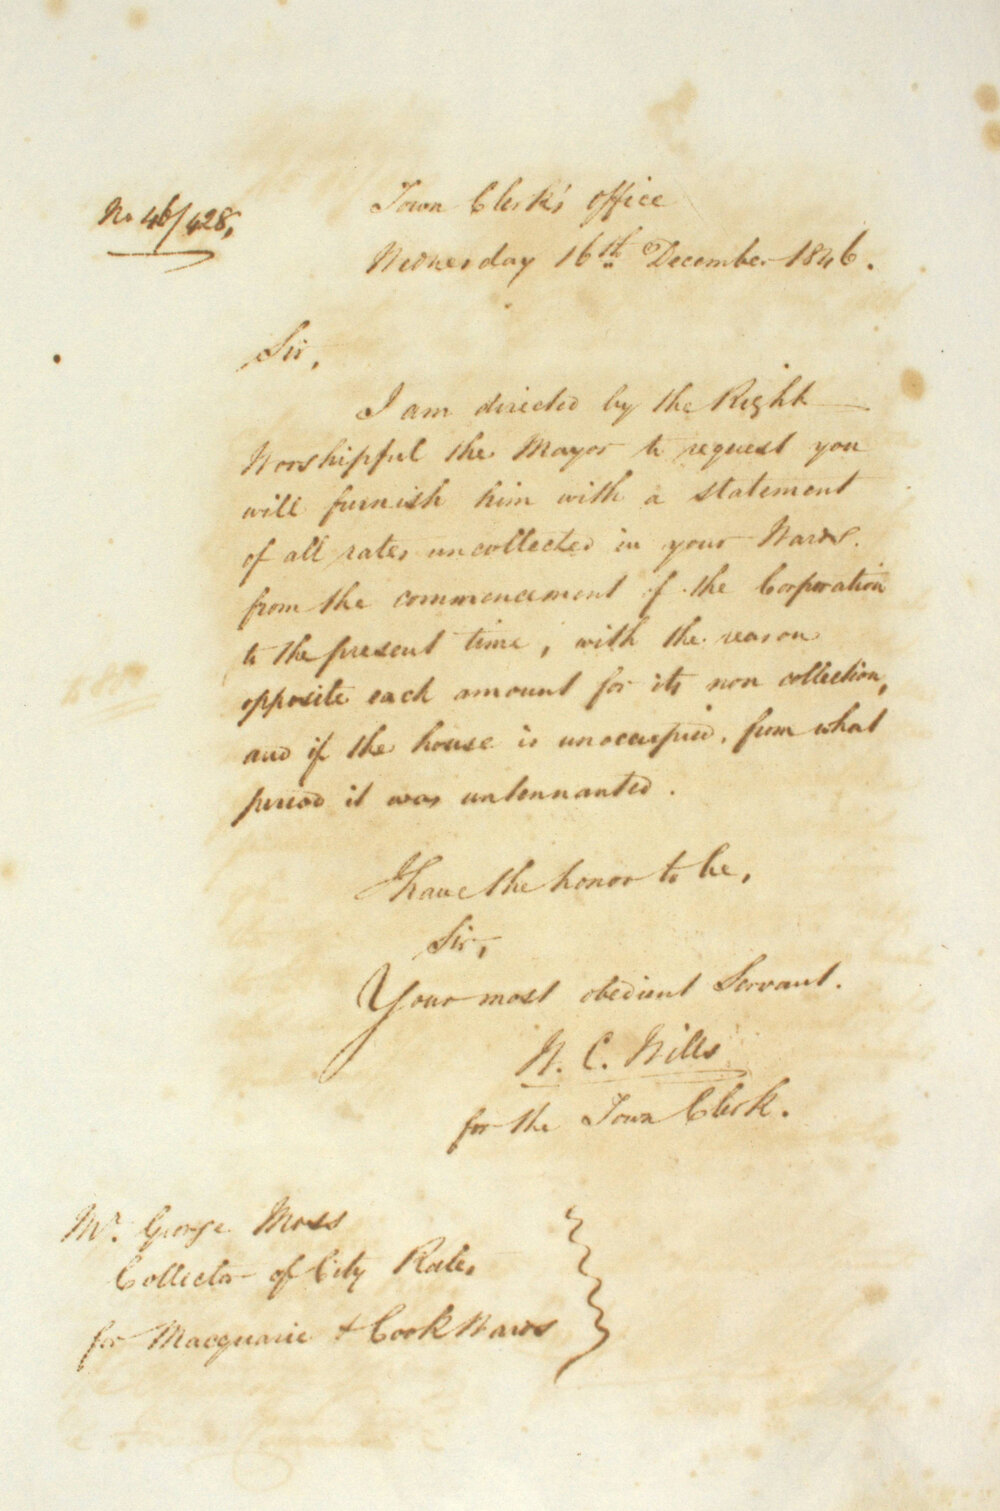 No 46/428,
Town Clerk's Office
Wednesday 16th December 1846.
Sir,
I am directed by the Right
Worshipful the Mayor to request you
will furnish him with a statement
of all rates uncollected in your Wards.
from the commencement of the Corporation
to the present time, with the reason
opposite each amount for its non collection,
and if the house is unoccupied, from what
period it was untennanted.
I have the honor to be,
Sir,
Your most obedient Servant.
W. C. Wills
for the Town Clerk.
Mr. George Moss
Collector of City Rates
for Macquarie & Cook Wards